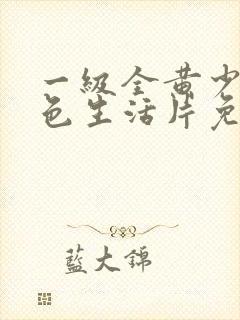 一級全黃少
色生活片免
藍大錦